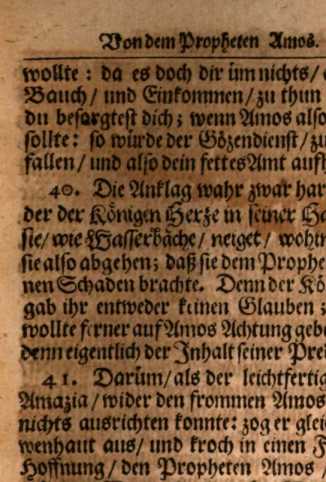 Von dem Propheten Amos.
wollte: da es doch dir üm nichts/
Bauch/ und Einkommen/ zu thun
du besorgtest dich; wenn Amos also
sollte: so würde der Götzendienst/ zu
fallen/ und also dein fettes Amt aufh
40. Die Anklag wahr zwar har
der der Königen Hertze in seiner Ha
sie/ wie Wasserbäche/ neiget/ wohin
sie also abgehen; daß sie dem Prophe
nen Schaden brachte. Denn der Kö
gab ihr entweder keinen Glauben
wollte ferner auf Amos Achtung geb
denn eigentlich der Inhalt seiner Pre
41. Darüm/ als der leichtfertig
Amazia/ wider den frommen Amos
nichts ausrichten konnte: zog er glei
wenhaut aus/ und kroch in einen F
Hoffnung/ den Propheten Amos /